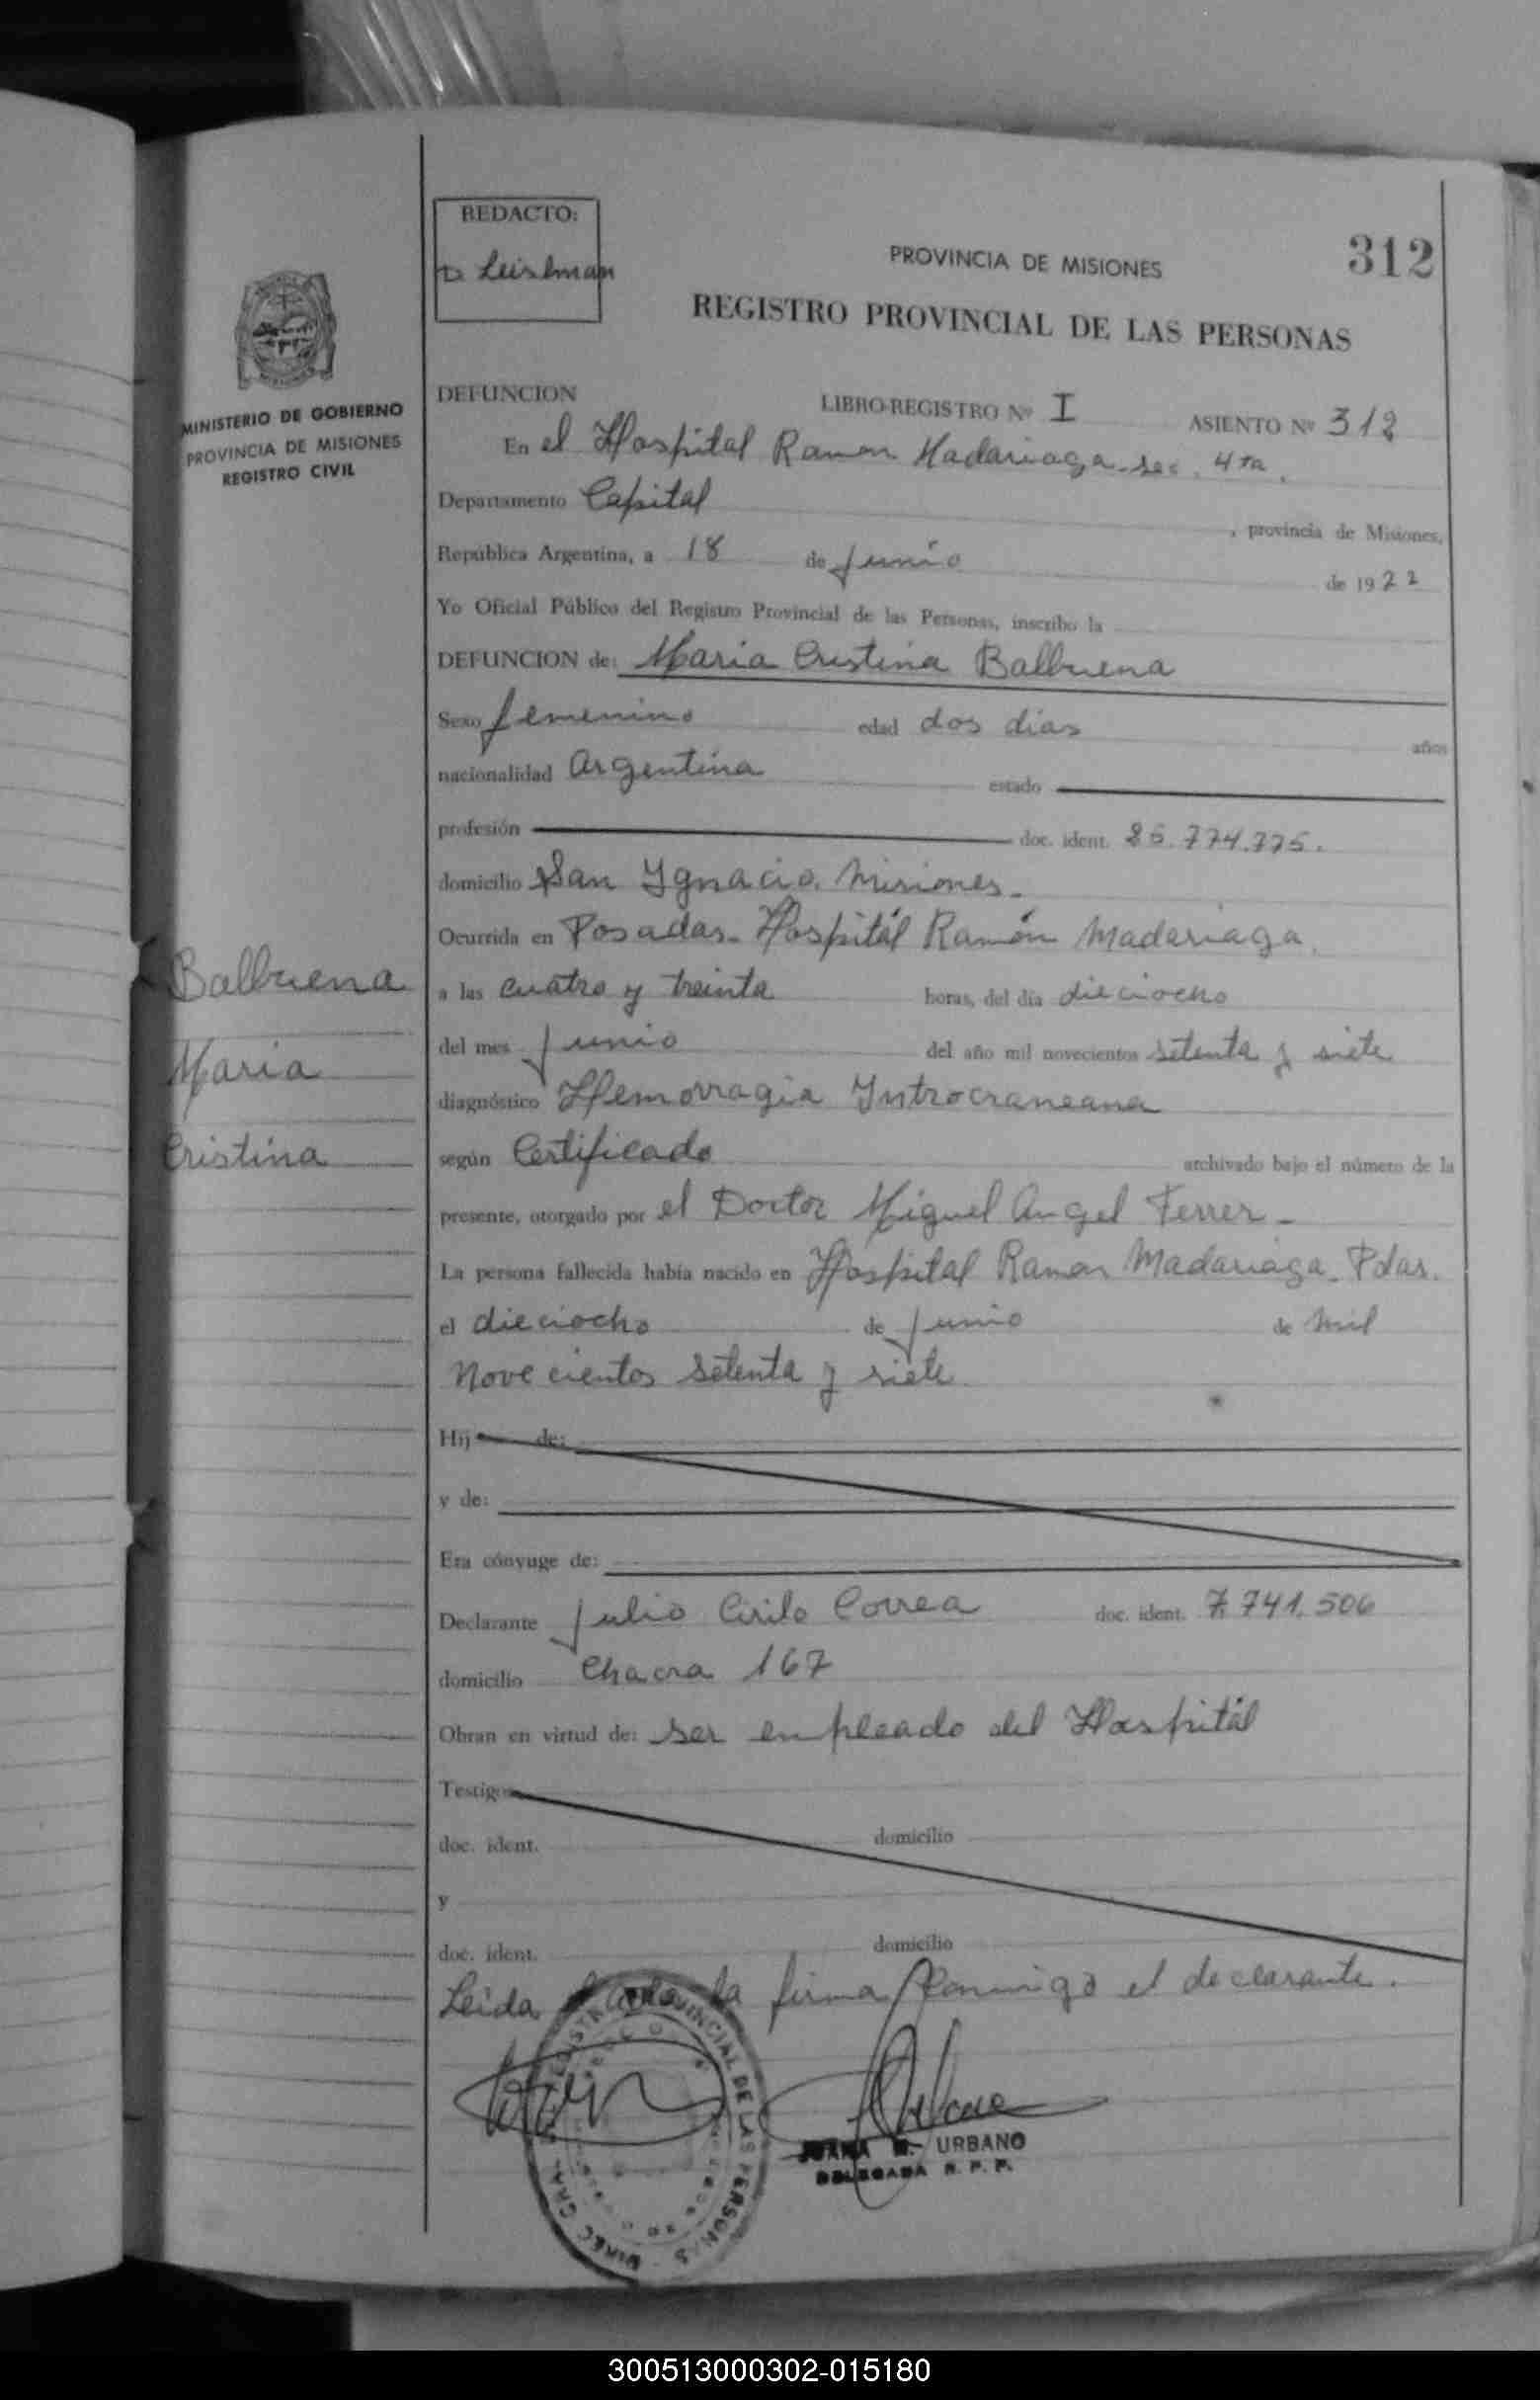 REDACTO:
D Leislman
PROVINCIA DE MISIONES
312
REGISTRO PROVINCIAL DE LAS PERSONAS
MINISTERIO DE GOBIERNO
PROVINCIA DE MISIONES
REGISTRO CIVIL
DEFUNCION LIBRO-REGISTRO Nº I ASIENTO Nº 312
En el Hospital Ramon Madariaga - sec. 4ta.
Departamento Capital , provincia de Misiones,
República Argentina, a 18 de junio de 1922
Yo Oficial Público del Registro Provincial de las Personas, inscribo la
DEFUNCION de: Maria Cristina Balbuena
Sexo femenino edad dos dias años
nacionalidad Argentina estado
profesión doc. ident. 25.774.775.
domicilio San Ygnacio. Misiones.
Ocurrida en Posadas - Hospitál Ramón Madariaga.
a las cuatro y treinta horas, del día dieciocho
del mes junio del año mil novecientos setenta y siete
diagnóstico Hemorragia Yntrocraneana
según Certificado archivado bajo el número de la
presente, otorgado por el Doctor Miguel Angel Ferrer -
La persona fallecida había nacido en Hospital Ramon Madariaga - Pdas.
el dieciocho de junio de mil
novecientos setenta y siete.
Hij de:
y de:
Era cónyuge de:
Declarante Julio Cirilo Correa doc. ident. 7.741.506
domicilio Chacra 167
Obran en virtud de: ser empleado del Hospitál
Testigos
doc. ident. domicilio
y
doc. ident. domicilio
Leida la firma conmigo el declarante.
Balbuena
Maria
Cristina
PROVINCIAL DE LAS PERSONAS
JUANA URBANO
DELEGADA R. P. P.
300513000302-015180